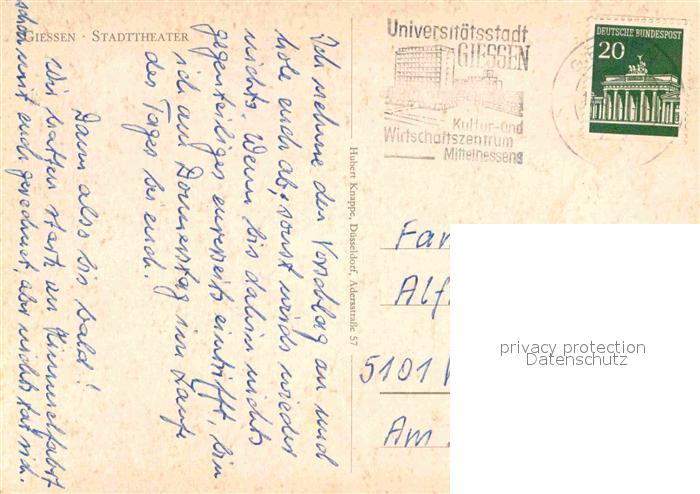 GIESSEN · STADTTHEATER
Ich nehme den Vorschlag an und
hole euch ab, sonst wird's wieder
nichts. Wenn bis dahin nichts
gegenteiliges eurerseits eintrifft, bin
ich am Donnerstag im Laufe
des Tages bei euch.
Dann also bis bald!
Wir hatten stark an Himmelfahrt
schon mit euch gerechnet, aber nichts tat sich.
Hubert Knappe, Düsseldorf, Adersstraße 57
Universitätsstadt
GIESSEN
Kultur-und
Wirtschaftszentrum
Mittelhessens
DEUTSCHE BUNDESPOST
20
Fam
Alf
5101
Am
privacy protection
Datenschutz